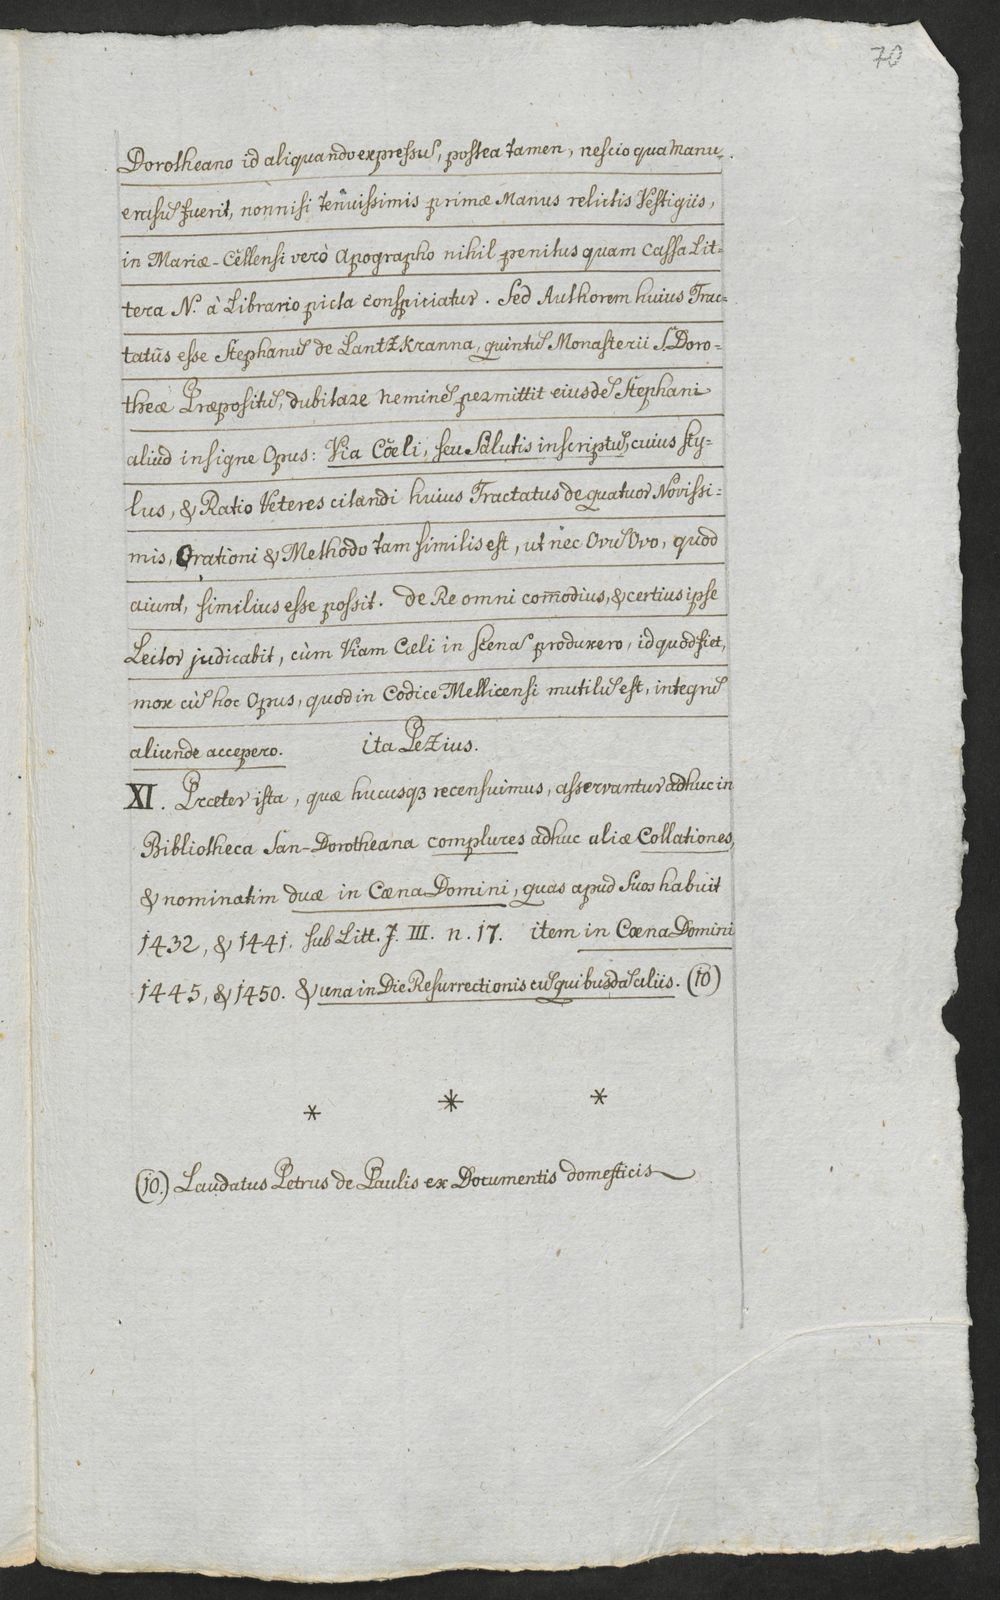 70
Dorotheano id aliquando expressũ, postea tamen, nescio qua Manu,
erasũ fuerit, nonnisi tenuissimis primæ Manus relictis Vestigiis,
in Mariæ-Cellensi verò Apographo nihil penitus quam Cassa Lit=
tera N. à Librario picta conspiciatur. Sed Authorem huius Trac=
tatûs esse Stephanũ de LantzKranna, quintũ Monasterii S. Doro=
theæ Præpositũ, dubitare neminẽ permittit eiusdẽ Stephani
aliud insigne Opus: Via Cœli, seu Salutis inscriptũ, cuius sty=
lus, & Ratio Veteres citandi huius Tractatus de quatuor Novissi=
mis, Orationi & Methodo tam similis est, ut nec Ovũ Ovo, quod
aiunt, similius esse possit. de Re omni com̃odius, & certius ipse
Lector judicabit, cùm Viam Cœli in scenã produxero, id quod fiet,
mox cũ hoc Opus, quod in Codice Mellicensi mutilũ est, integrũ
aliunde accepero. ita PeZius.
XI. Præter ista, quæ hucusqꝫ recensuimus, asservantur adhuc in
Bibliotheca San-Dorotheana complures adhuc aliæ Collationes,
& nominatim duæ in Cæna Domini, quas apud Suos habuit
1432, & 1441. sub Litt. J. III. n. 17. item in Cœna Domini
1445, & 1450. & una in Die Resurrectionis cũ quibusdã aliis. (10)
* * *
(10.) Laudatus Petrus de Paulis ex Documentis domesticis